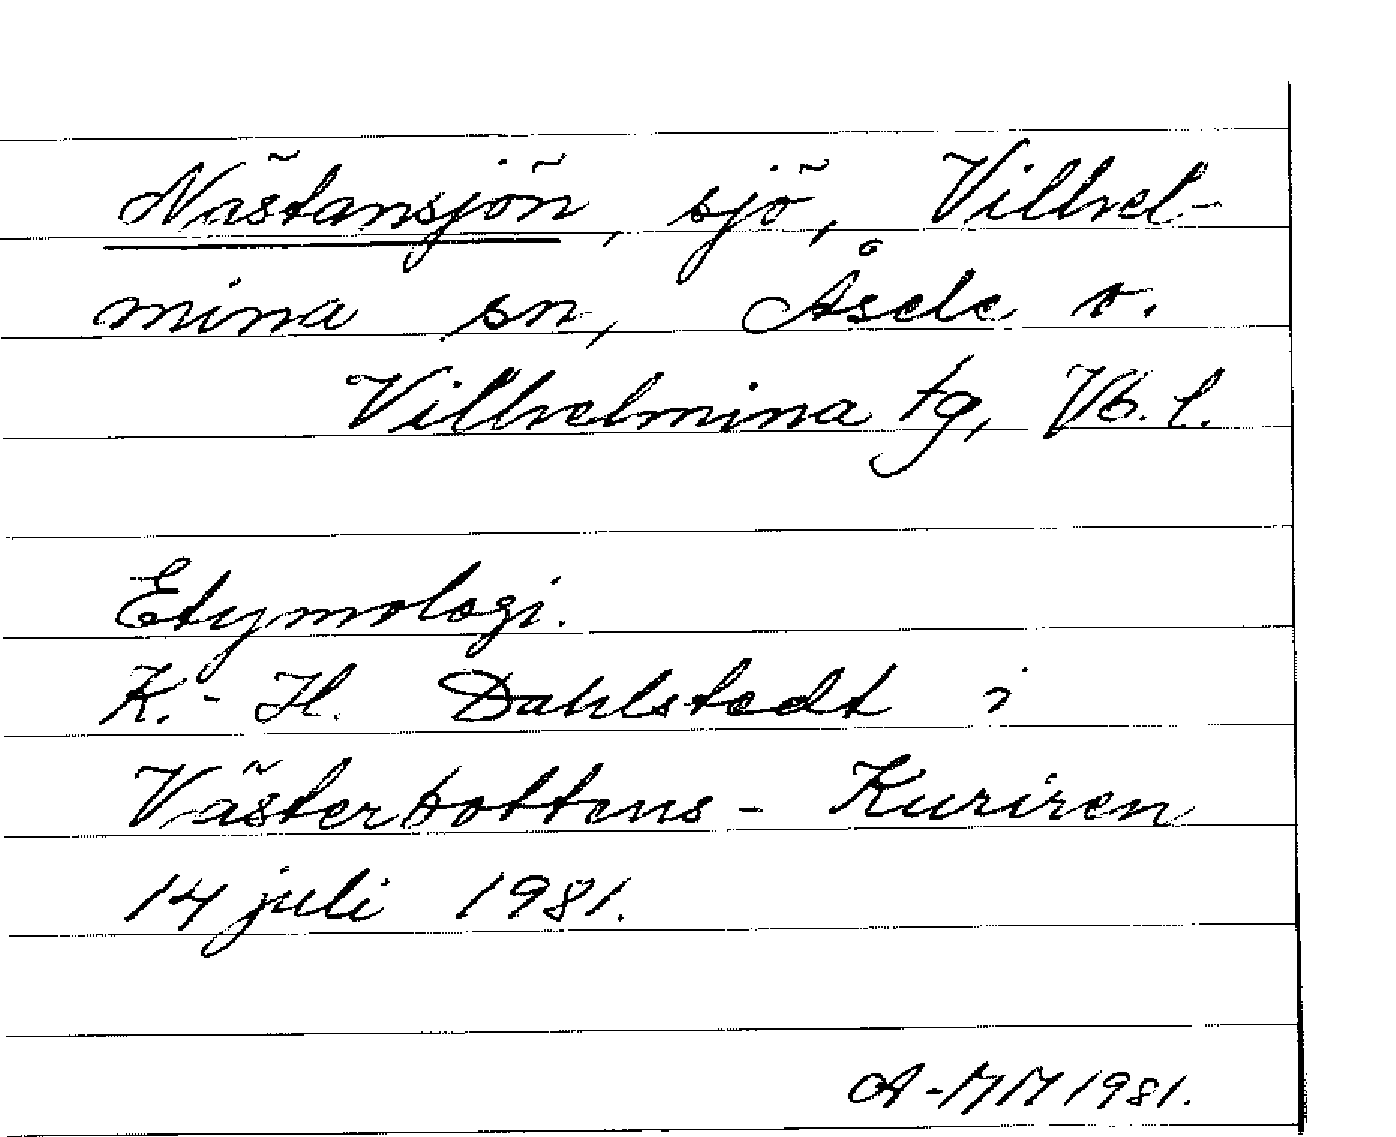 Nästansjön, sjö, Vilhel-
mina sn, Åsele o.
Vilhelmina tg, Vb. l.
Etymologi.
K.-H. Dahlstedt i
Västerbottens-Kuriren
14 juli 1981.
A-MM 1981.